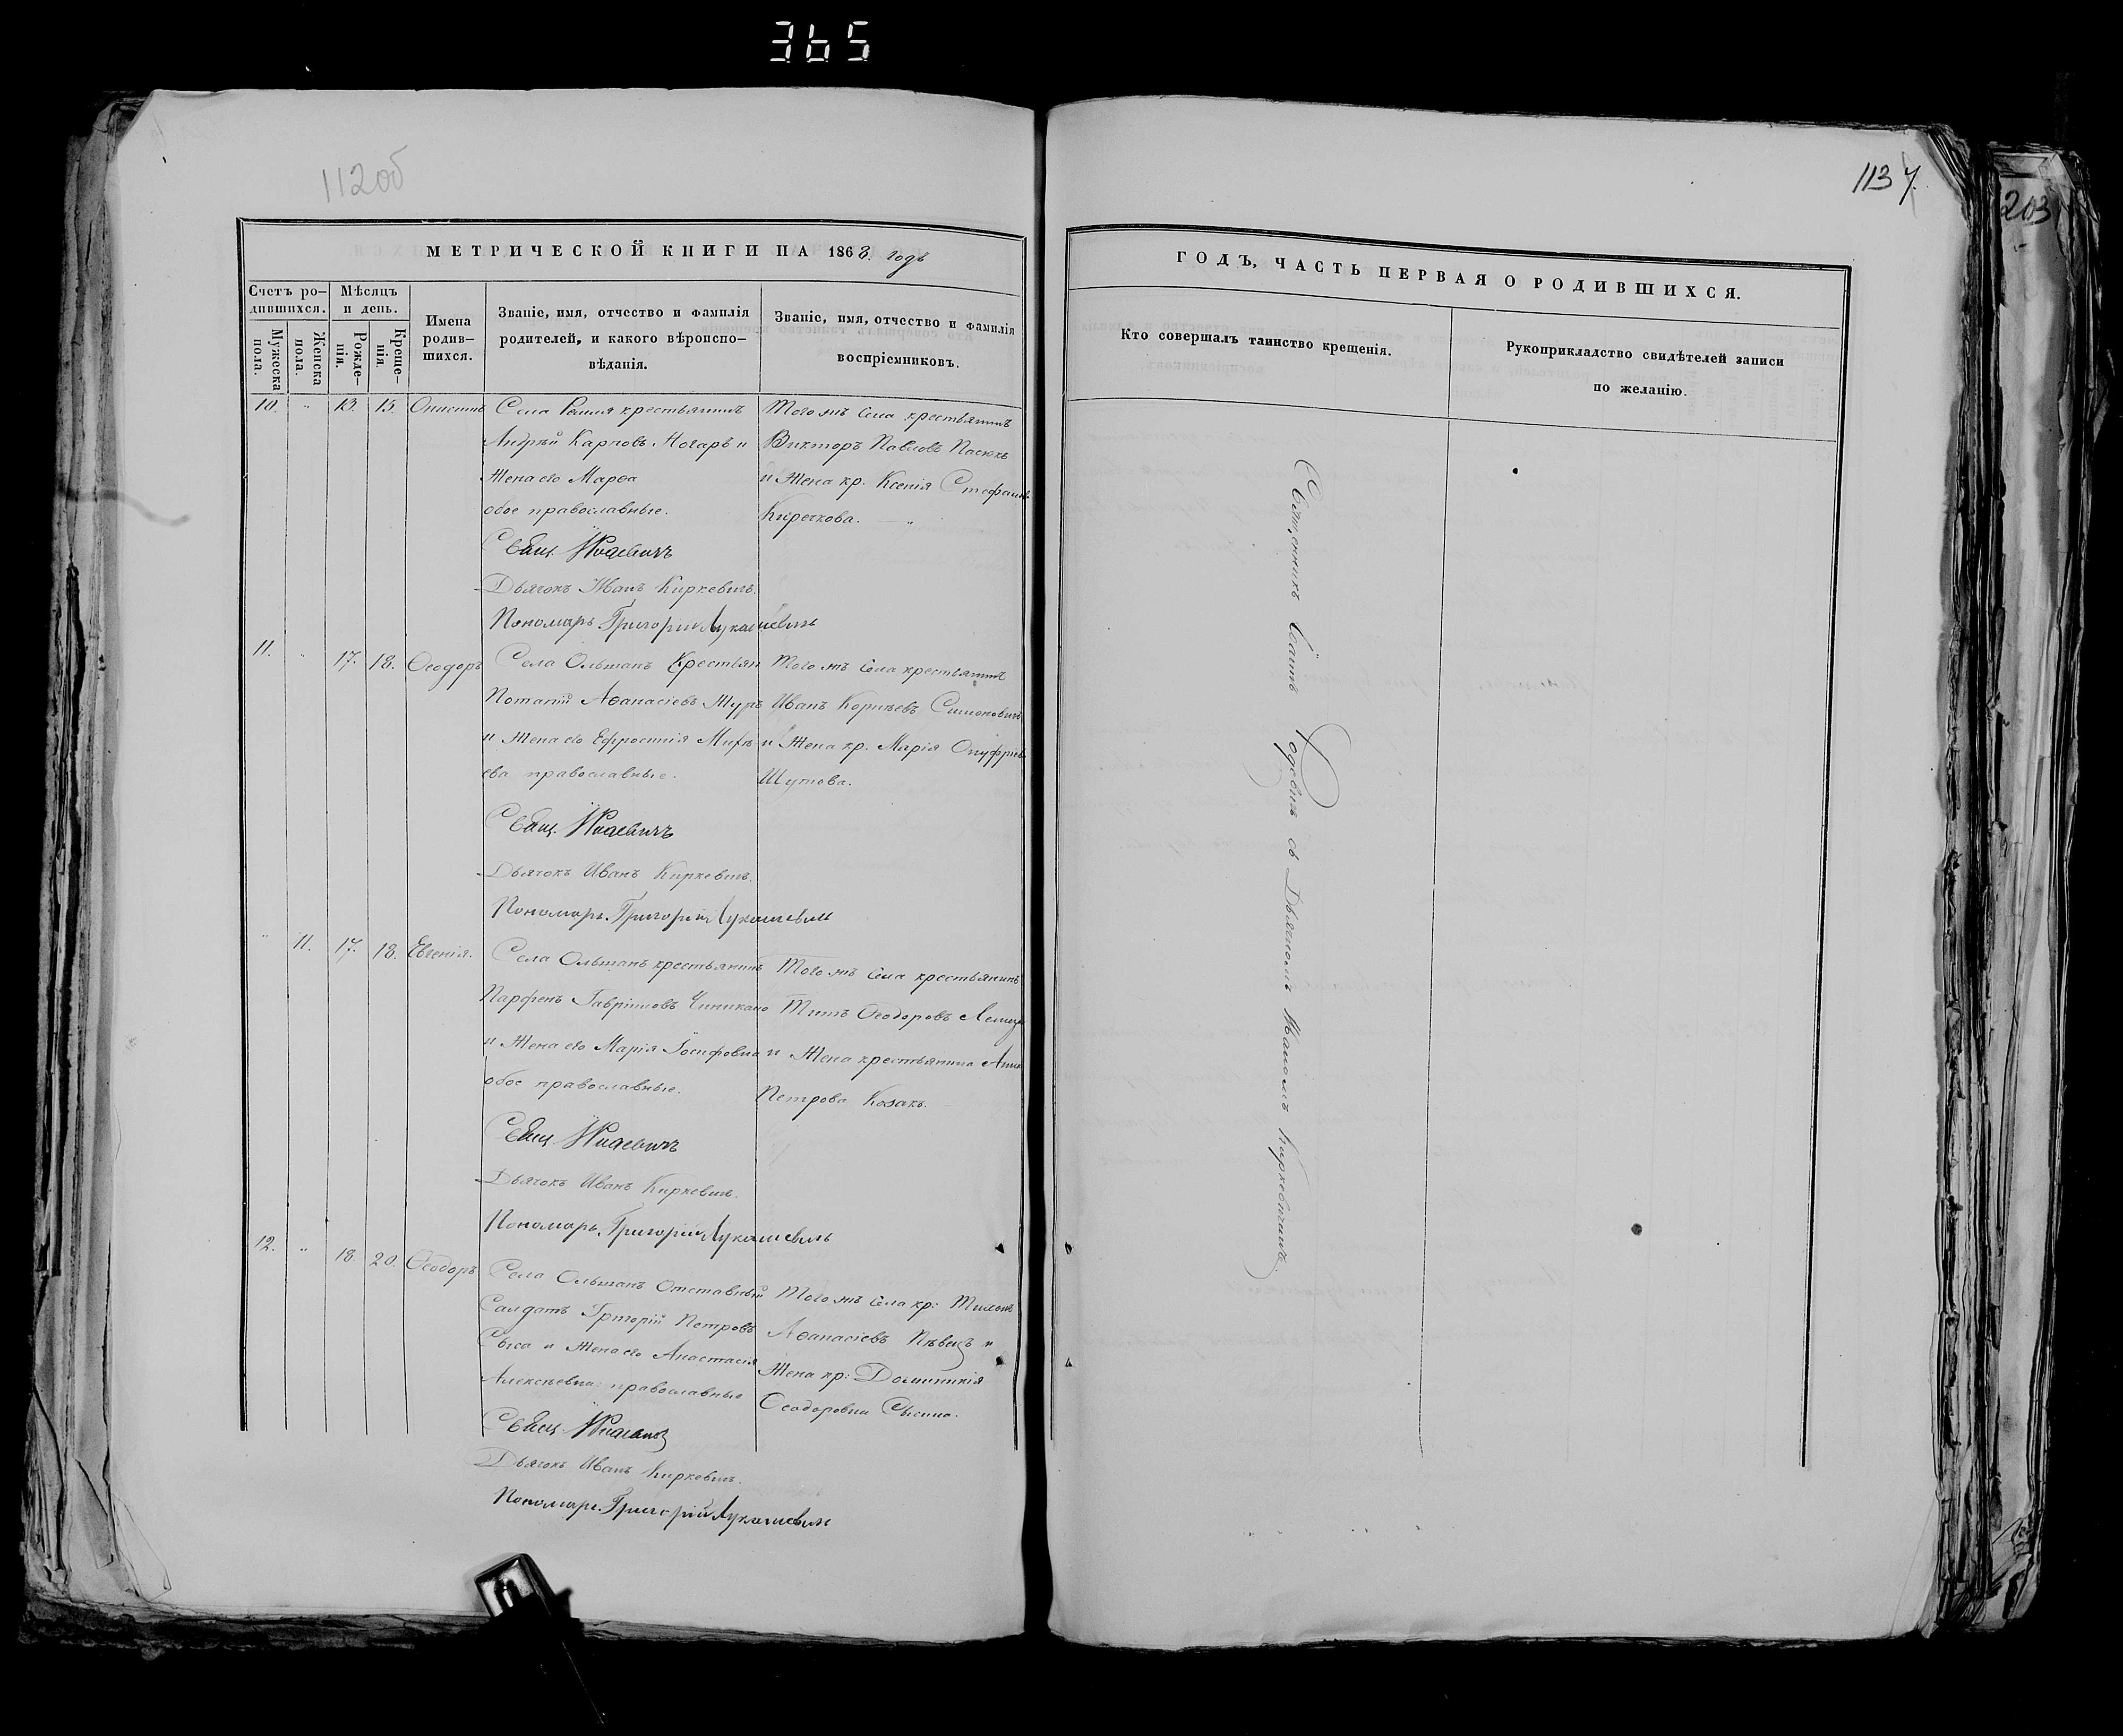 365
112об
1137.
203
МЕТРИЧЕСКОЙ КНИГИ НА 1868. годъ
Счетъ ро-
дившихся.
Мужеска
пола.
Женска
пола.
Мѣсяцъ
и день.
Рожде-
нія.
Креще-
нія.
Имена
родив-
шихся.
Званіе, имя, отчество и фамилія
родителей, и какого вѣроиспо-
вѣданія.
Званіе, имя, отчество и фамилія
воспріемниковъ.
10. " 13. 15.
Села крестьянинъ
Андрей Карповъ и
Жена его Марѳа
обое православные.
Свящ.
Дьячокъ Иванъ Киркевичъ.
Пономарь Григорій Лукашевичъ
Того жъ села крестьянинъ
Викторъ Павловъ
и Жена кр. Ксенія
11. " 17. 18. Ѳеодоръ
Села Ольшанъ Крестьян
Потапій Аѳанасіевъ Журъ
и Жена его
ева православные.
Свящ.
Дьячокъ Иванъ Киркевичъ.
Пономарь Григорій Лукашевичъ
Того жъ села крестьянинъ
Иванъ Корнѣевъ Симоновичъ
и Жена кр. Марія
Шутова.
" 11. 17. 18. Евгенія.
Села Ольшанъ крестьянинъ
Парфенъ Гавріиловъ
и Жена его Марія Іосифовна
обое православные.
Свящ.
Дьячокъ Иванъ Киркевичъ.
Пономарь Григорій Лукашевичъ
Того жъ села крестьянинъ
Титъ Ѳеодоровъ
и Жена крестьянина Анна
Петрова Козакъ.
12. " 18. 20. Ѳеодоръ
Села Ольшанъ Отставный
Салдатъ Григорій Петровъ
и Жена его Анастасія
Алексѣевна православные
Свящ.
Дьячокъ Иванъ Киркевичъ.
Пономарь Григорій Лукашевичъ
Того жъ села кр:
Аѳанасіевъ Пѣвецъ и
Жена кр: Доминикія
Ѳеодоровна
ГОДЪ, ЧАСТЬ ПЕРВАЯ О РОДИВШИХСЯ.
Кто совершалъ таинство крещенія.
Рукоприкладство свидѣтелей записи
по желанію.
Священникъ съ Дьячкомъ Иваномъ Киркевичемъ.